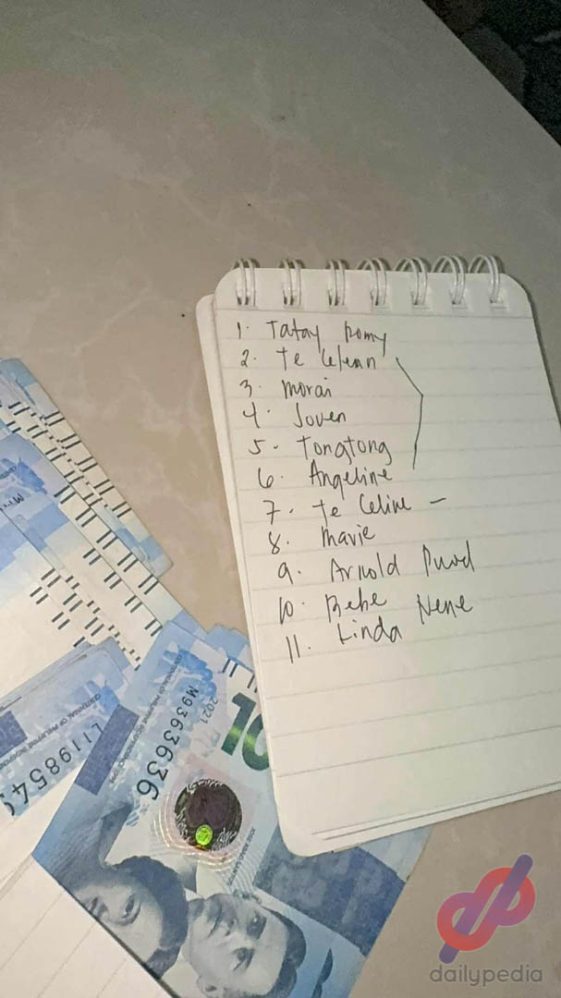 1. Tatay Romy
2. Te
3. morai
4. Joven
5. Tongtong
6. Angeline
7. Te Celine -
8. mavie
9. Arnold
10. Bebe Nene
11. Linda
2021
M9363636
10
L119854
dailypedia